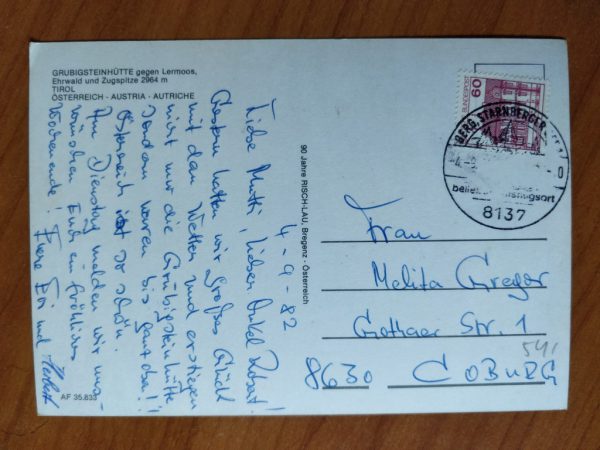 GRUBIGSTEINHÜTTE gegen Lermoos,
Ehrwald und Zugspitze 2964 m
TIROL
ÖSTERREICH - AUSTRIA - AUTRICHE
4-9-82
Liebe Mutti, lieber Onkel Robert!
Gestern hatten wir großes Glück
mit dem Wetter und erstiegen
nicht nur die Grubigsteinhütte
sondern waren bis ganz oben!!
Österreich ist so schön.
Am Dienstag melden wir uns -
wünschen Euch ein fröhliches
Wochenende! Eure Evi und Herbert
AF 35.833
90 Jahre RISCH-LAU, Bregenz · Österreich
60
BUNDESPOST
BERG, STARNBERGER
4.-9
8137
Frau
Melita Gregor
Gothaer Str. 1
8630 COBURG